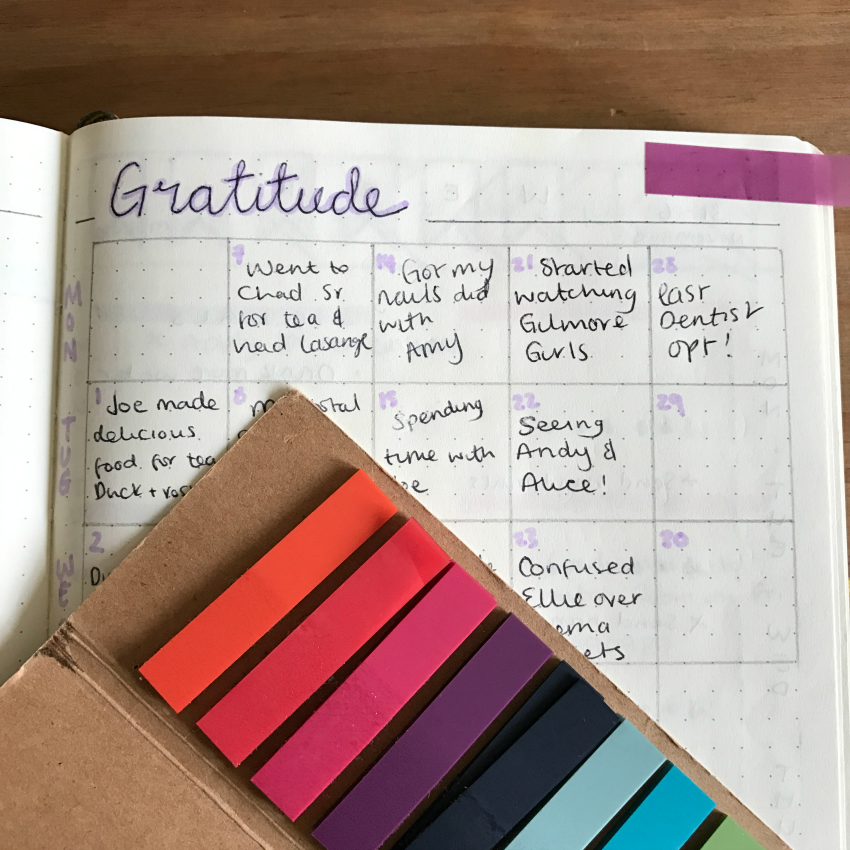 Gratitude
MON
7 Went to
Chad Sr
for tea &
had lasange
14 Got my
nails did
with
Amy
21 Started
watching
Gilmore
Girls.
28
last
Dentist
opt!
TUE
1 Joe made
delicious
food for tea
Duck +
8
15
Spending
time with
22
Seeing
Andy &
Alice!
29
WE
2
23
Confused
Ellie over
30